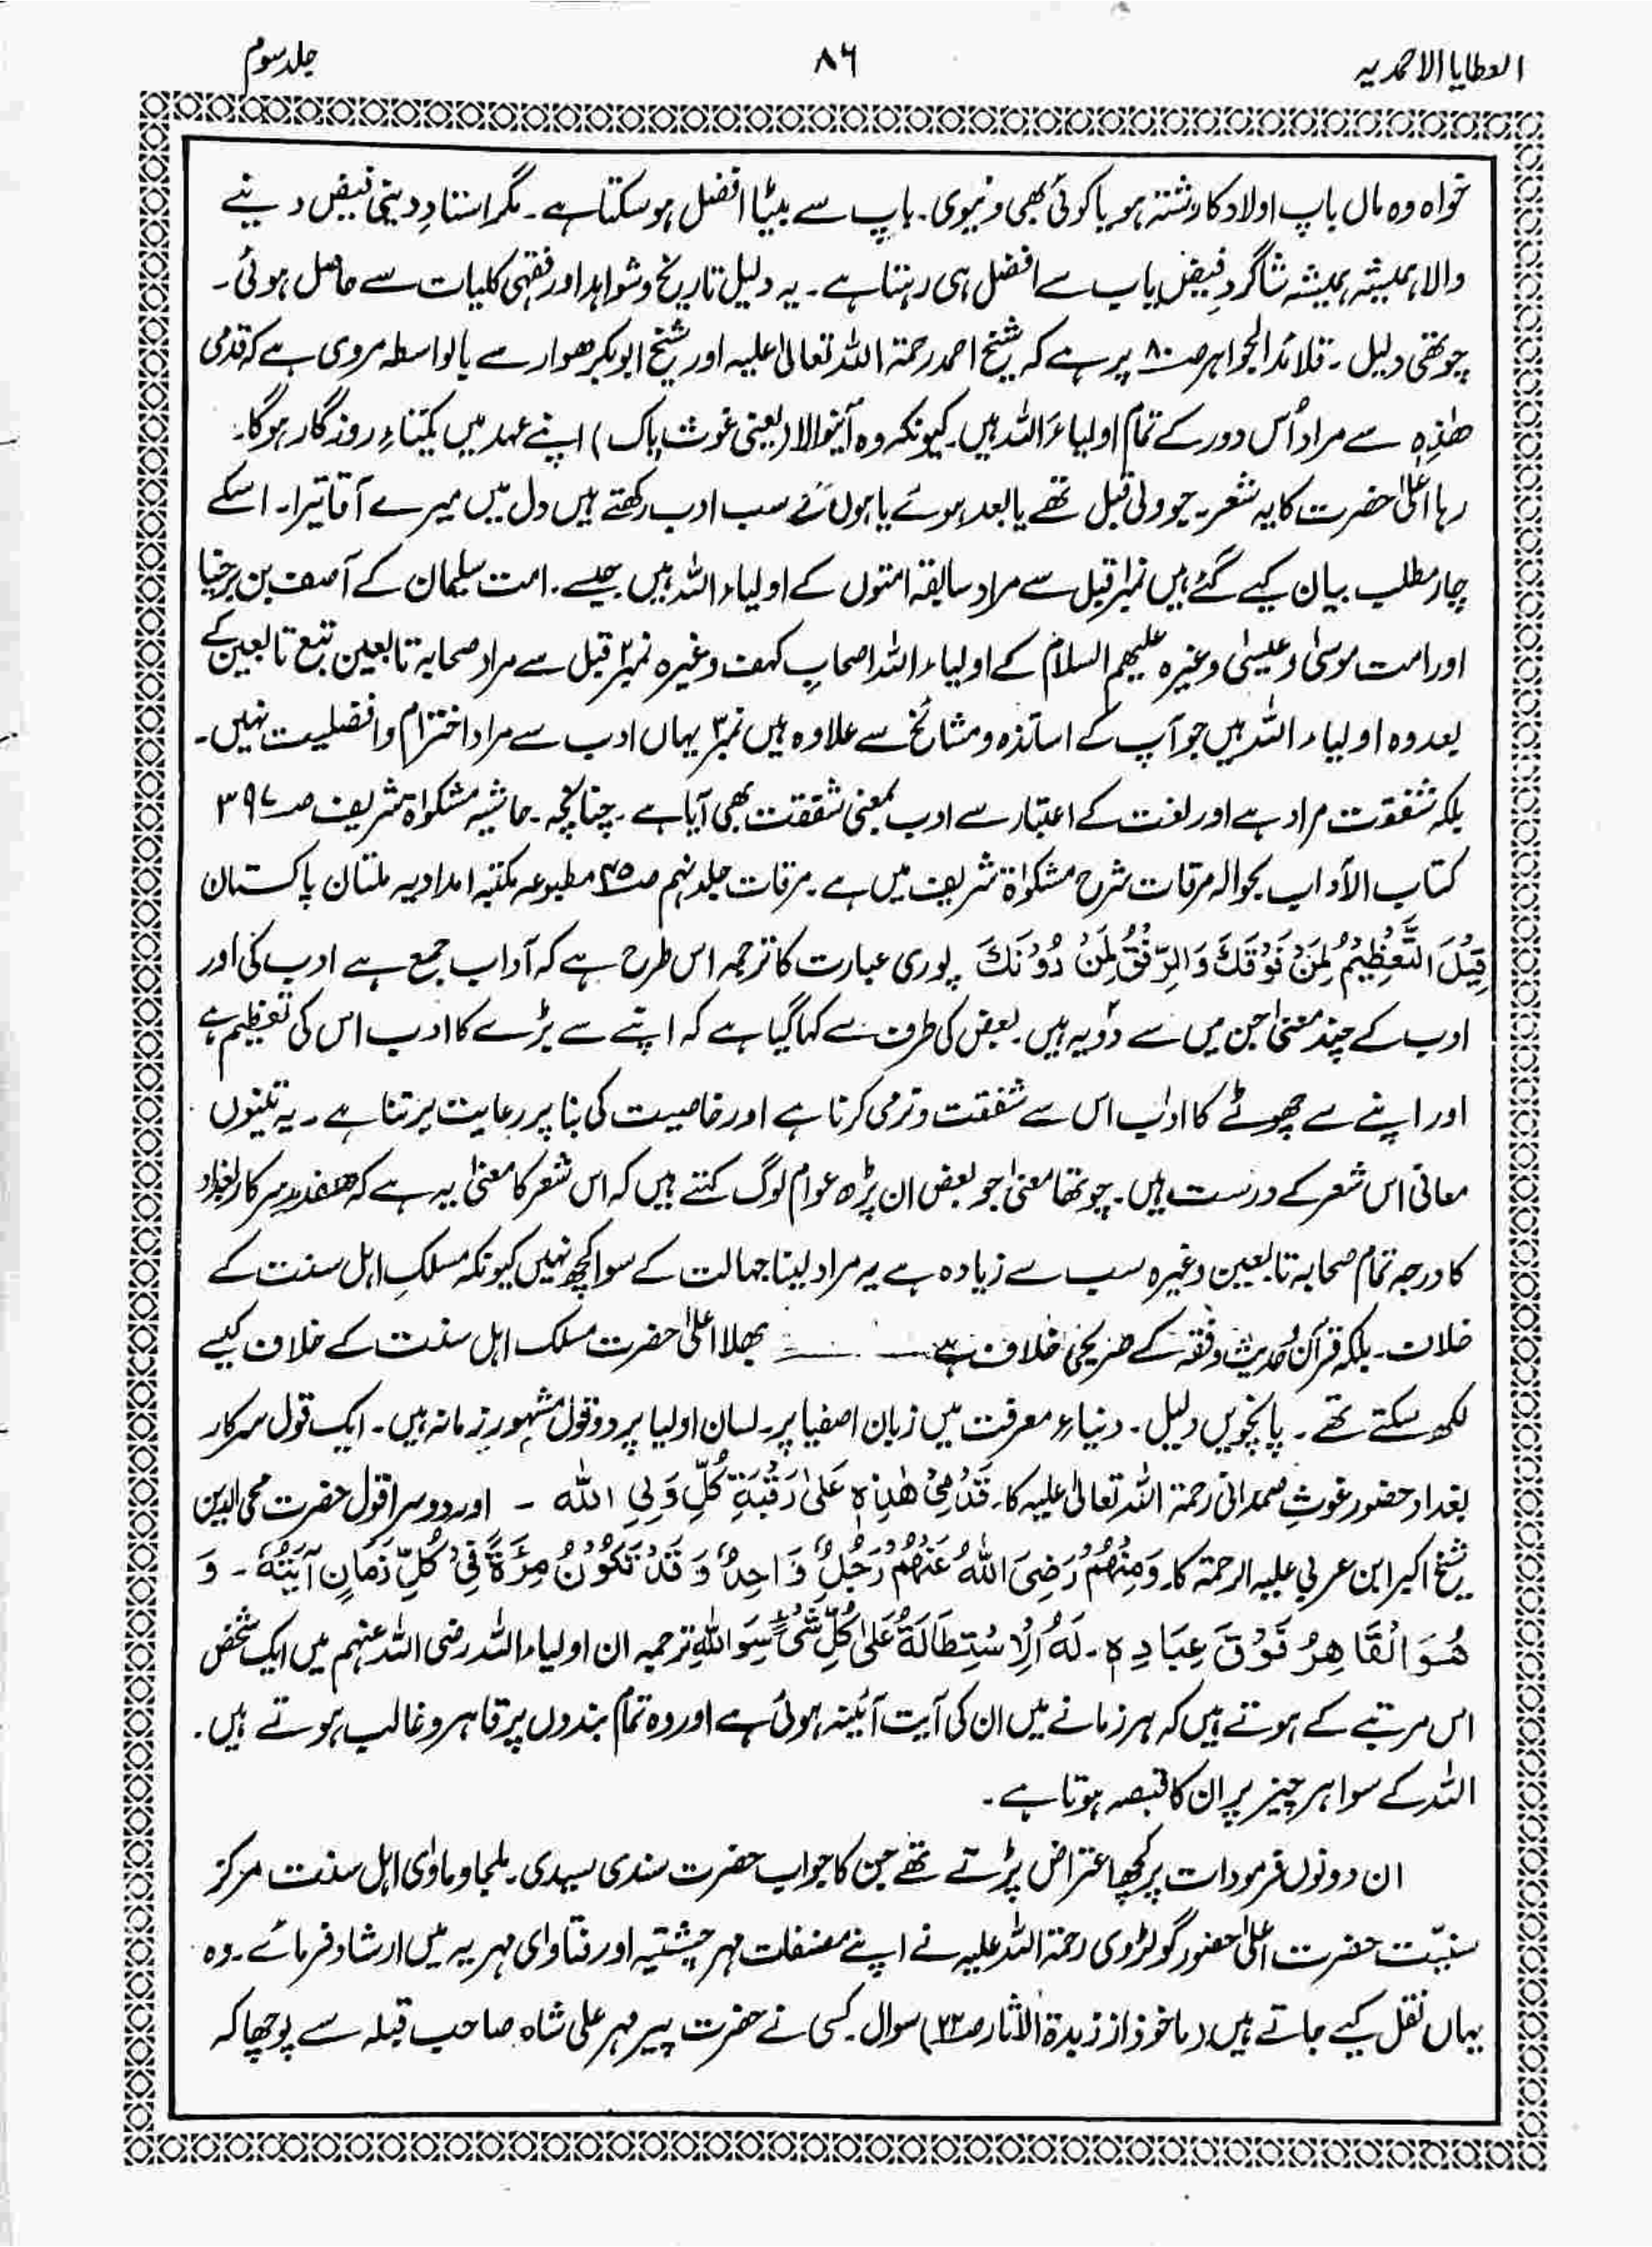 العطایا الاحمدیہ
۸۶
جلد سوم
خواہ وہ ماں باپ اولاد کا رشتہ ہو یا کوئی بھی دنیوی۔ باپ سے بیٹا افضل ہو سکتا ہے۔ مگر استادِ دینی فیض دینے
والا ہمیشہ ہمیشہ شاگردِ فیض یاب سے افضل ہی رہتا ہے۔ یہ دلیل تاریخ و شواہد اور فقہی کلیات سے حاصل ہوئی۔
چوتھی دلیل۔ قلائد الجواہر صـ۸۰ پر ہے کہ شیخ احمد رحمۃ اللہ تعالیٰ علیہ اور شیخ ابوبکر ھوار سے بالواسطہ مروی ہے کہ قدمی
ھٰذِہٖ سے مراد اُس دور کے تمام اولیاء اللہ ہیں۔ کیونکہ وہ آنیوالا (یعنی غوث پاک) اپنے عہد میں یکتاءِ روزگار ہوگا۔
رہا اعلیٰ حضرت کا یہ شعر۔ جو ولی قبل تھے یا بعد ہوئے یا ہوں گے سب ادب رکھتے ہیں دل میں میرے آقا تیرا۔ اسکے
چار مطلب بیان کیے گئے ہیں نمبر۱ قبل سے مراد سابقہ امتوں کے اولیاء اللہ ہیں جیسے۔ امت سلیمان کے آصف بن برخیا
اور امت موسیٰ و عیسیٰ وغیرہ علیھم السلام کے اولیاء اللہ اصحابِ کہف وغیرہ نمبر۲ قبل سے مراد صحابہ تابعین تبع تابعین کے
بعد وہ اولیاء اللہ ہیں جو آپ کے اساتذہ و مشائخ سے علاوہ ہیں نمبر۳ یہاں ادب سے مراد احترام و افضلیت نہیں۔
بلکہ شفقت مراد ہے اور لغت کے اعتبار سے ادب بمعنیٰ شفقت بھی آیا ہے۔ چنانچہ۔ حاشیہ مشکوٰۃ شریف صـ ۳۹۷
کتاب الآداب بحوالہ مرقات شرح مشکوٰۃ شریف میں ہے۔ مرقات جلد نہم صـ۴۵ مطبوعہ مکتبہ امدادیہ ملتان پاکستان
قِیْلَ التَّعْظِیْمُ لِمَنْ فَوْقَكَ وَالرِّفْقُ لِمَنْ دُوْنَكَ پوری عبارت کا ترجمہ اس طرح ہے کہ آداب جمع ہے ادب کی اور
ادب کے چند معنیٰ جن میں سے دو یہ ہیں۔ بعض کی طرف سے کہا گیا ہے کہ اپنے سے بڑے کا ادب اس کی تعظیم ہے
اور اپنے سے چھوٹے کا ادب اس سے شفقت و نرمی کرنا ہے اور خاصیت کی بنا پر رعایت برتنا ہے۔ یہ تینوں
معانی اس شعر کے درست ہیں۔ چوتھا معنیٰ جو بعض ان پڑھ عوام لوگ کہتے ہیں کہ اس شعر کا معنیٰ یہ ہے کہ حضور سرکار بغداد
کا درجہ تمام صحابہ تابعین وغیرہ سب سے زیادہ ہے یہ مراد لینا جہالت کے سوا کچھ نہیں کیونکہ مسلکِ اہل سنت کے
خلاف۔ بلکہ قرآن حدیث و فقہ کے صریحی خلاف ہے۔ بھلا اعلیٰ حضرت مسلک اہل سنت کے خلاف کیسے
لکھ سکتے تھے۔ پانچویں دلیل۔ دنیاءِ معرفت میں زبان اصفیا پر۔ لسان اولیا پر دو قول مشہور زمانہ ہیں۔ ایک قول سرکار
بغداد حضور غوثِ صمدانی رحمۃ اللہ تعالیٰ علیہ کا۔ قَدَمِیْ ھٰذِہٖ عَلیٰ رَقَبَۃِ کُلِّ وَلِیِ اللّٰہ ۔ اور دوسرا قول حضرت محی الدین
شیخ اکبر ابن عربی علیہ الرحمۃ کا۔ وَمِنْھُمْ رَضِیَ اللّٰہُ عَنْھُمْ رَجُلٌ وَّاحِدٌ وَقَدْ تَکُوْنُ مِرْءَۃً فِیْ کُلِّ زَمَانٍ آیَتُہٗ ۔ وَ
ھُوَ الْقَاھِرُ فَوْقَ عِبَادِہٖ۔ لَہُ الْاِسْتِطَالَۃُ عَلیٰ کُلِّ شَیْءٍ سِوَاللّٰہِ ترجمہ ان اولیاء اللہ رضی اللہ عنہم میں ایک شخص
اس مرتبے کے ہوتے ہیں کہ ہر زمانے میں ان کی آیت آئینہ ہوئی ہے اور وہ تمام بندوں پر قاہر و غالب ہوتے ہیں۔
اللہ کے سوا ہر چیز پر ان کا قبضہ ہوتا ہے۔
ان دونوں فرمودات پر کچھ اعتراض پڑتے تھے جن کا جواب حضرت سندی سیدی۔ ملجا و ماوٰی اہل سنت مرکز
سنیّت حضرت اعلیٰ حضور گولڑوی رحمۃ اللہ علیہ نے اپنے مصنفات مہر چشتیہ اور فتاوای مہریہ میں ارشاد فرمائے۔ وہ
یہاں نقل کیے جاتے ہیں (ماخوذ از زبدۃ الاثار صـ۲۲) سوال۔ کسی نے حضرت پیر مہر علی شاہ صاحب قبلہ سے پوچھا کہ